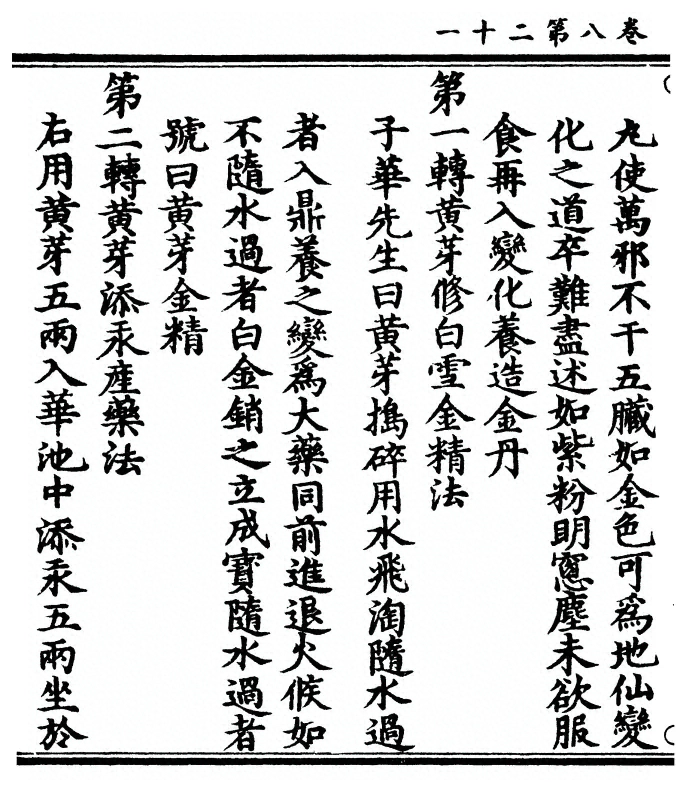 卷八第二十一
丸使萬邪不干五臟如金色可爲地仙變
化之道卒難盡述如紫粉明窓塵未欲服
食再入變化養造金丹
第一轉黄芽修白雪金精法
子華先生曰黄芽搗碎用水飛淘隨水過
者入鼎養之變爲大藥同前進退火候如
不隨水過者白金銷之立成寳隨水過者
號曰黄芽金精
第二轉黄芽添汞産藥法
右用黄芽五兩入華池中添汞五兩坐於